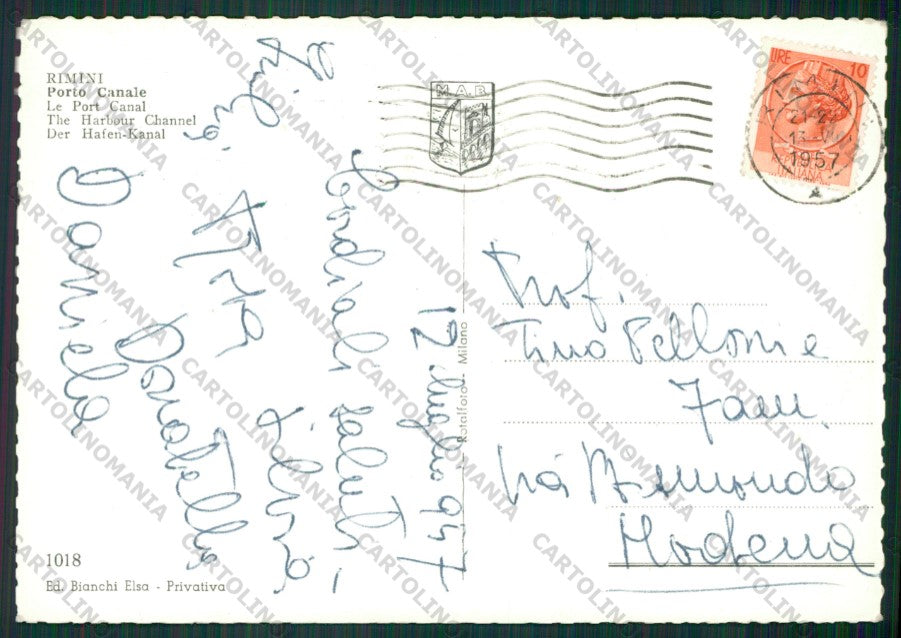 RIMINI
Porto Canale
Le Port Canal
The Harbour Channel
Der Hafen-Kanal
M.A.R.
LIRE 10
21-22
13
1957
A
ITALIANA
12 luglio 957
Cordiali saluti
Silvia
Donatella
Daniela
Prof.
Tino Pelloni e
Fam.
Via
Modena
Rotalfoto - Milano
1018
Ed. Bianchi Elsa - Privativa
CARTOLINOMANIA